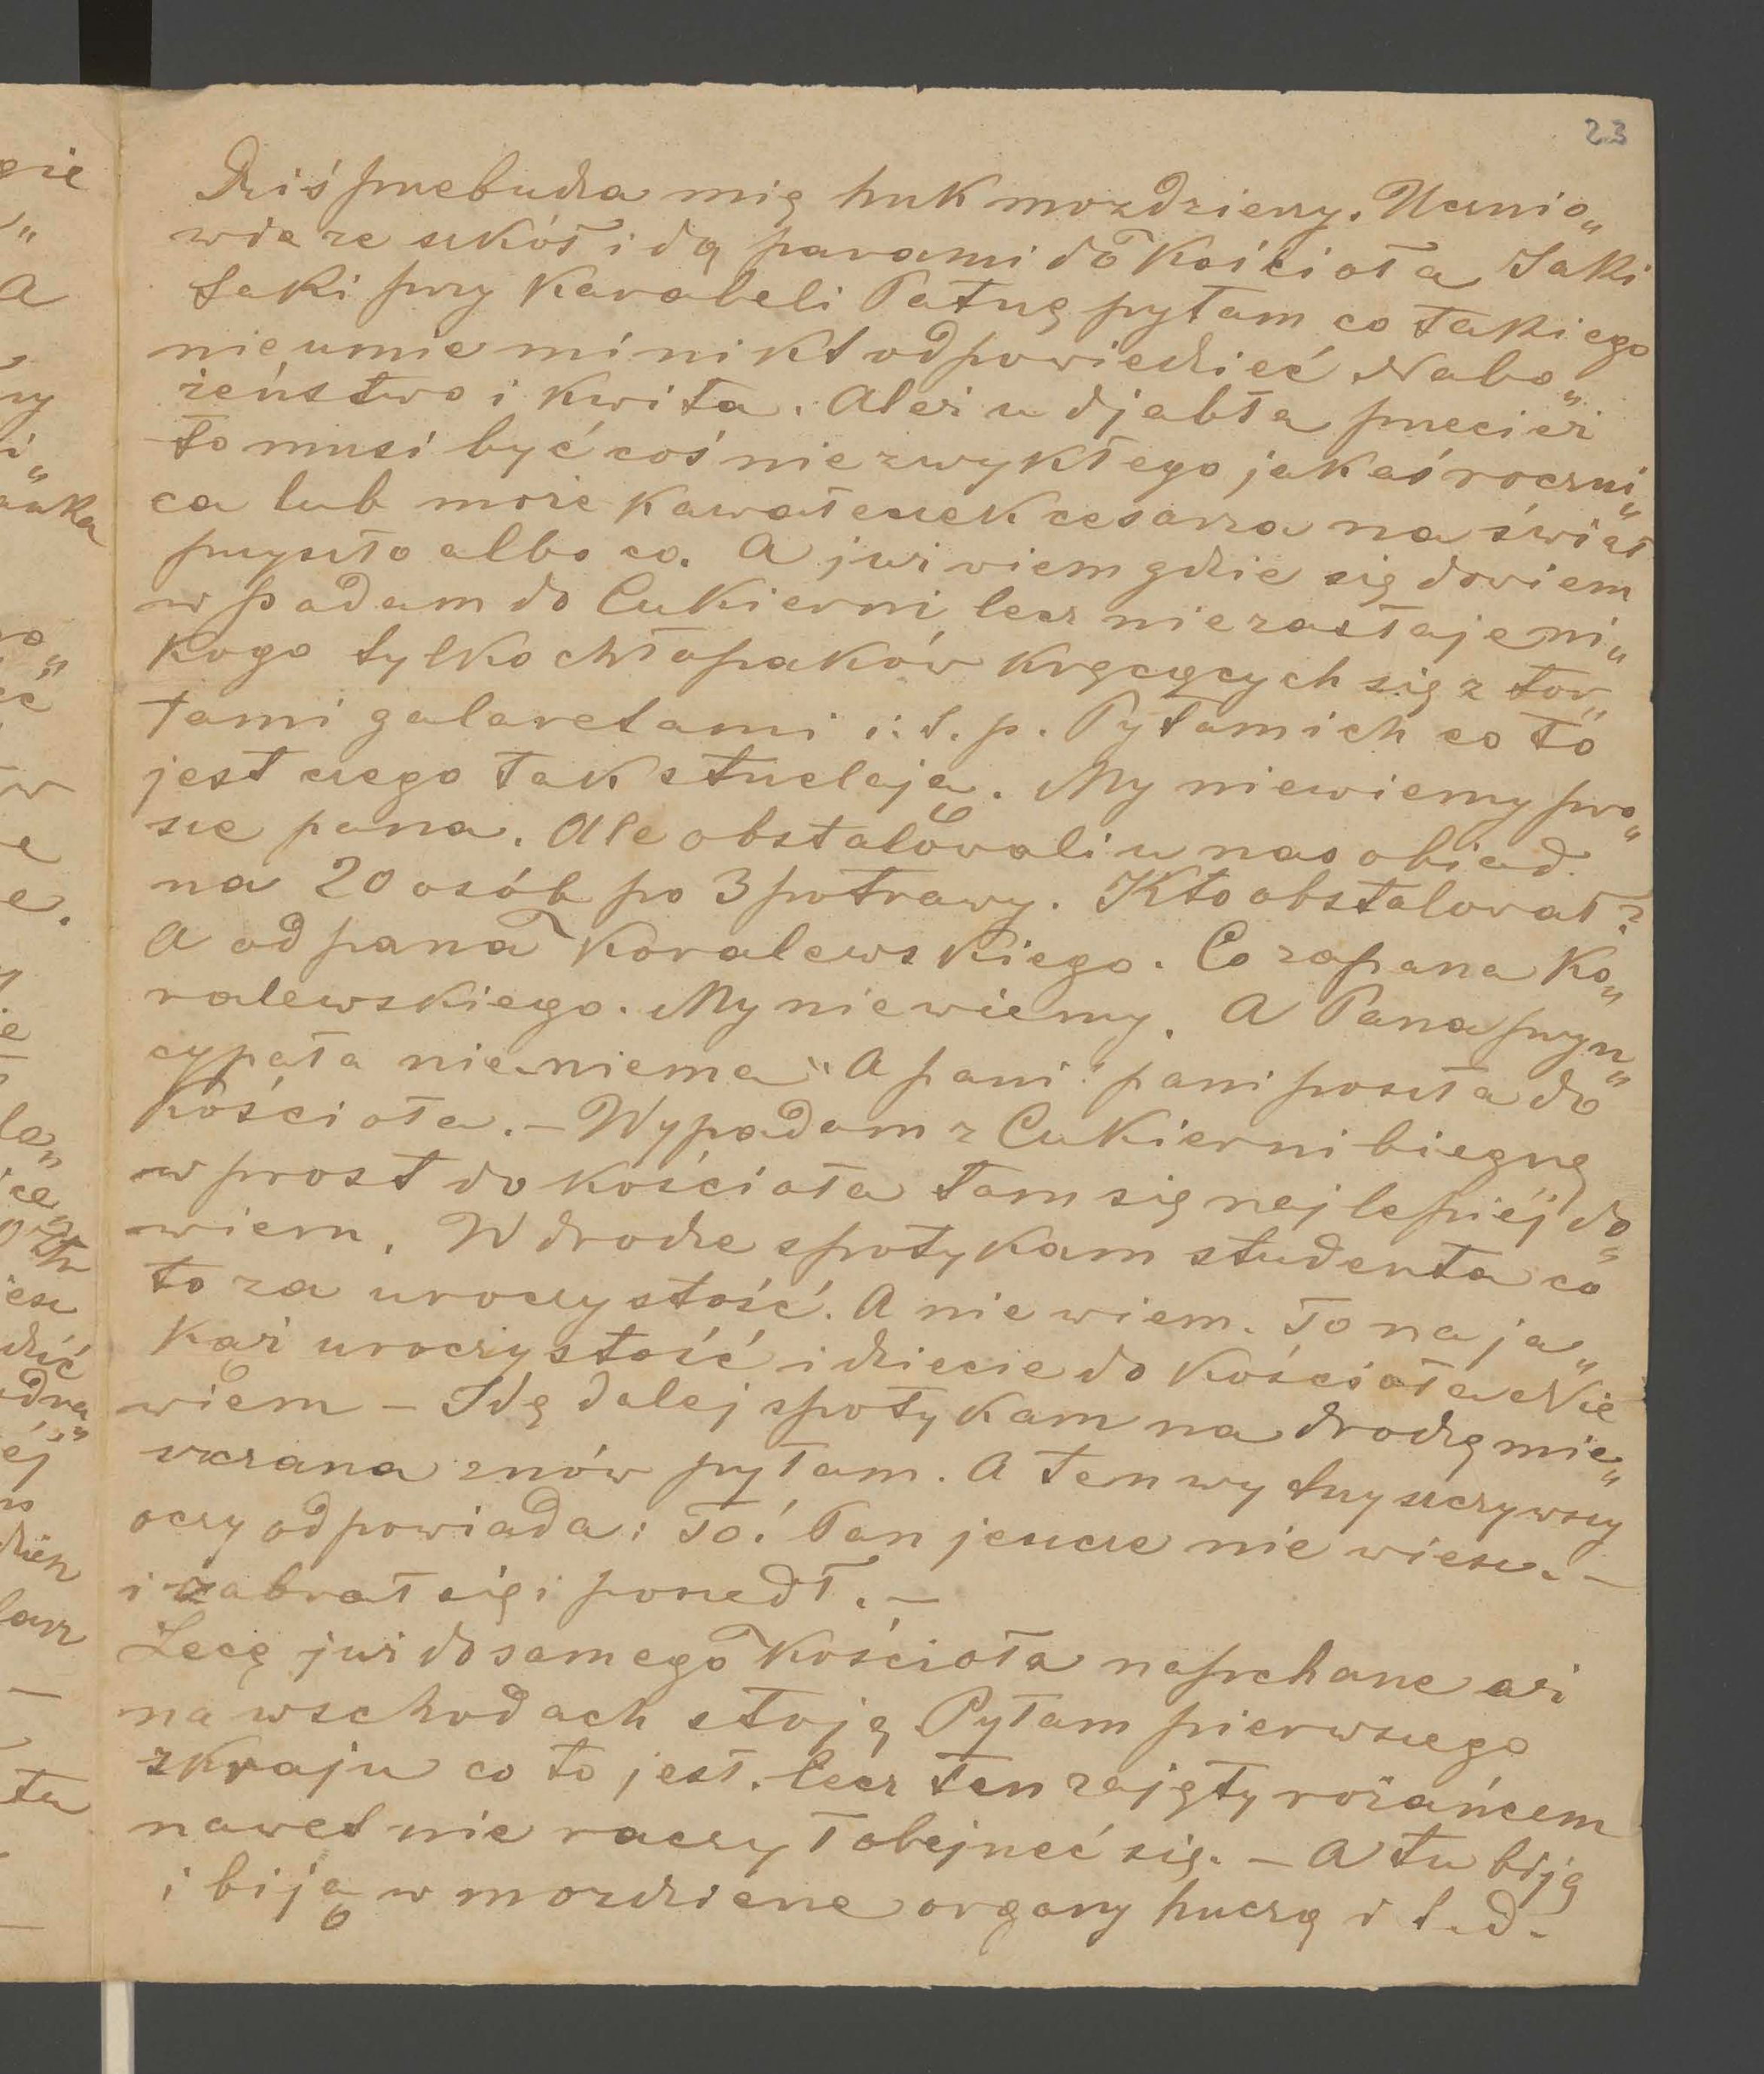 23
Dziś przebudza mię huk mozdzierzy. Ucznio„
wie ze szkół idą parami do Kościoła Jaki
taki przy Karabeli Patrzę pytam co takiego
nie umie mi nikt odpowiedzieć Nabo„
żeństwo i kwita. Ależ u djabła przecież
to musi być coś niezwykłego jakaś roczni„
ca lub może kawałeczek cesarza na świat
przyszło albo co. A już wiem gdzie się dowiem
wpadam do Cukierni lecz nie zastaje ni„
kogo tylko chłopaków kręcących się z tor„
tami galaretami i t. p. Pytam ich co to
jest czego tak strzelają. My niewiemy pro„
sze pana. Ale obstalowali u nas obiad
na 20 osób po 3 potrawy. Kto obstalował?
A od pana Kowalewskiego. Co za pana Ko„
walewskiego. My nie wiemy. A Pana pryn„
cypała nie niema" A pani" pani poszła do
Kościoła. – Wypadam z Cukierni biegnę
wprost do kościoła tam się najlepiéj do„
wiem. W drodze spotykam studenta co
to za uroczystość. A nie wiem. To na ja„
kąż uroczystość idziecie do Kościoła Nie
wiem – Idę dalej spotykam na drodzę mie„
szczana znów pytam. A ten wytrzyszczywszy
oczy odpowiada: To! Pan jeszcze nie wiesz. –
i zabrał się i poszedł. –
Lecę już do samego Kościoła napchane aż
na wschodach stoją Pytam pierwszego
zkraju co to jest. lecz ten zajęty różańcem
nawet nie raczył obejrzeć się. – A tu biją
i biją w mozdzierze organy huczą i t. d.